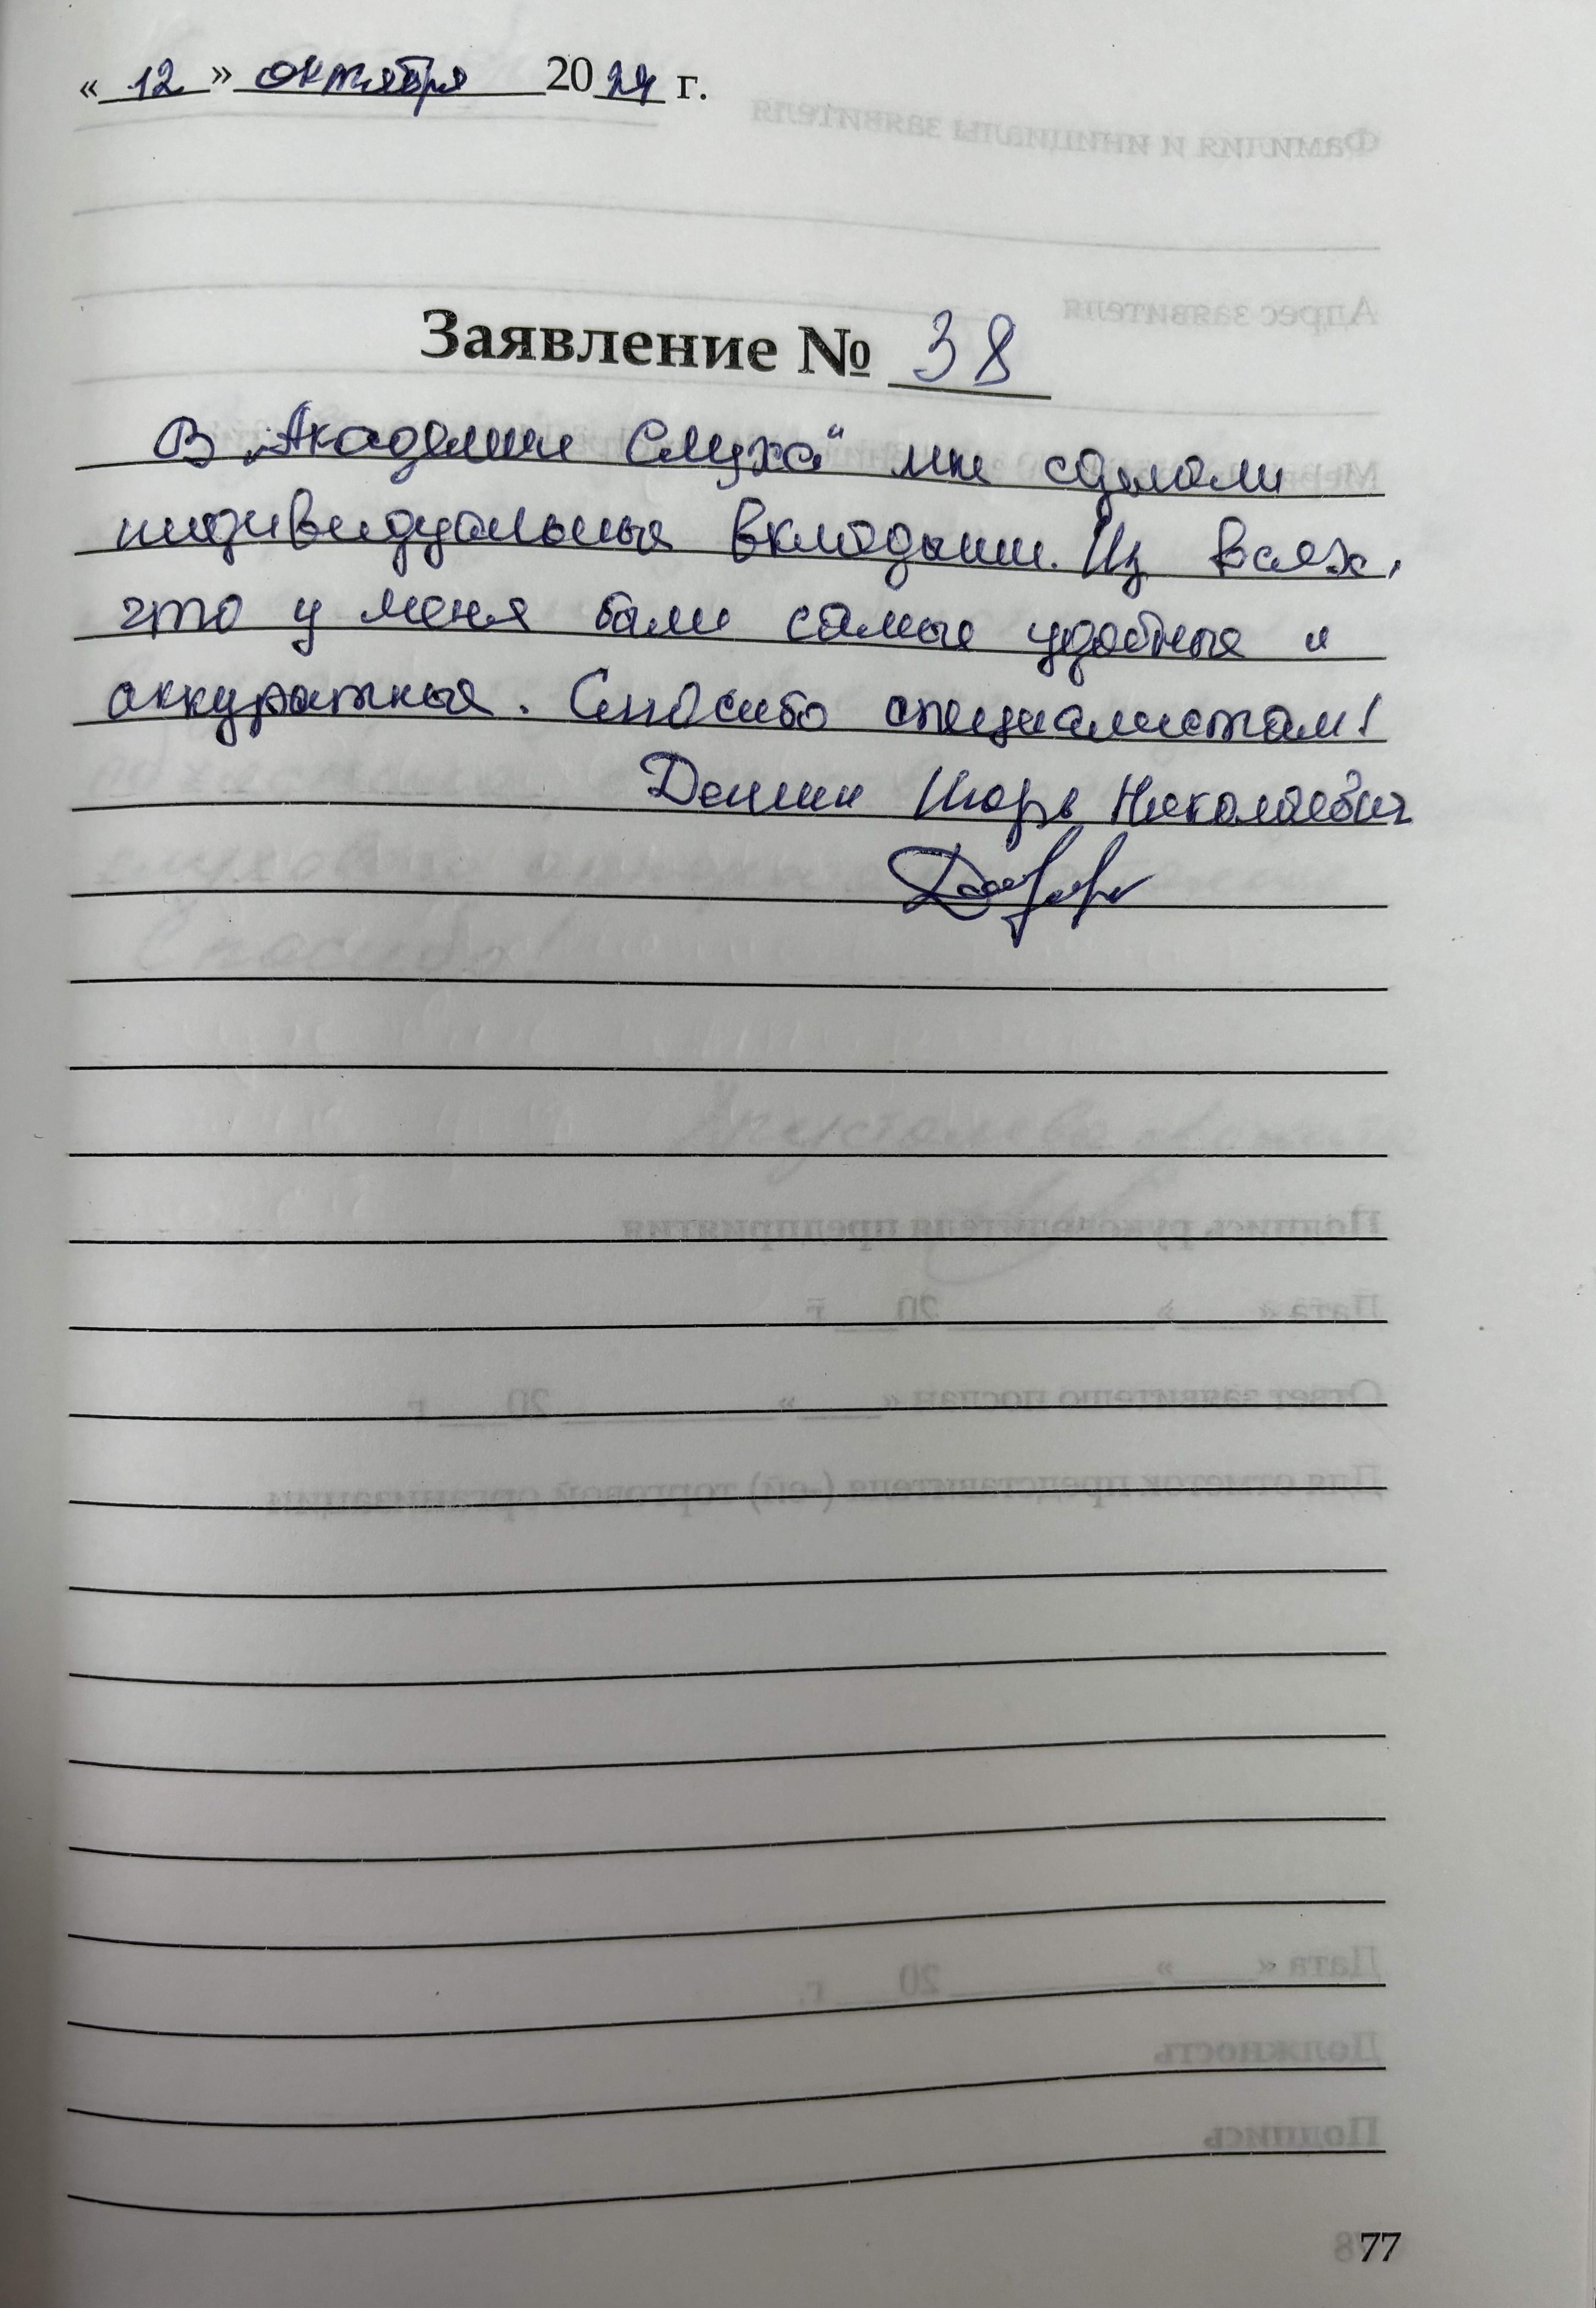 « 12 » октября 2024 г.
Заявление № 38
В „Академии Слуха“ мне сделали
индивидуальные вкладыши. Из всех,
что у меня были самые удобные и
аккуратные. Спасибо специалистам!
Игорь Николаевич
77